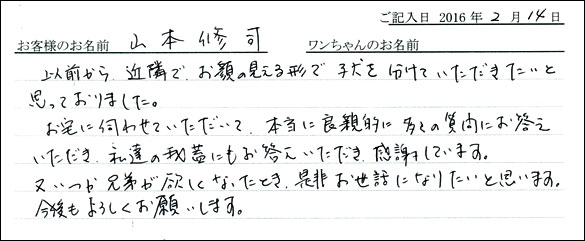 ご記入日 2016年2月14日
お客様のお名前 山本修司 ワンちゃんのお名前
以前から、近隣で、お顔の見える形で子犬を分けていただきたいと
思っておりました。
お宅に伺わせていただいて、本当に良親的に多くの質問にお答え
いただき、私達の にもお答えいただき、感謝しています。
又いつか兄弟が欲しくなったとき、是非お世話になりたいと思います。
今後もよろしくお願いします。